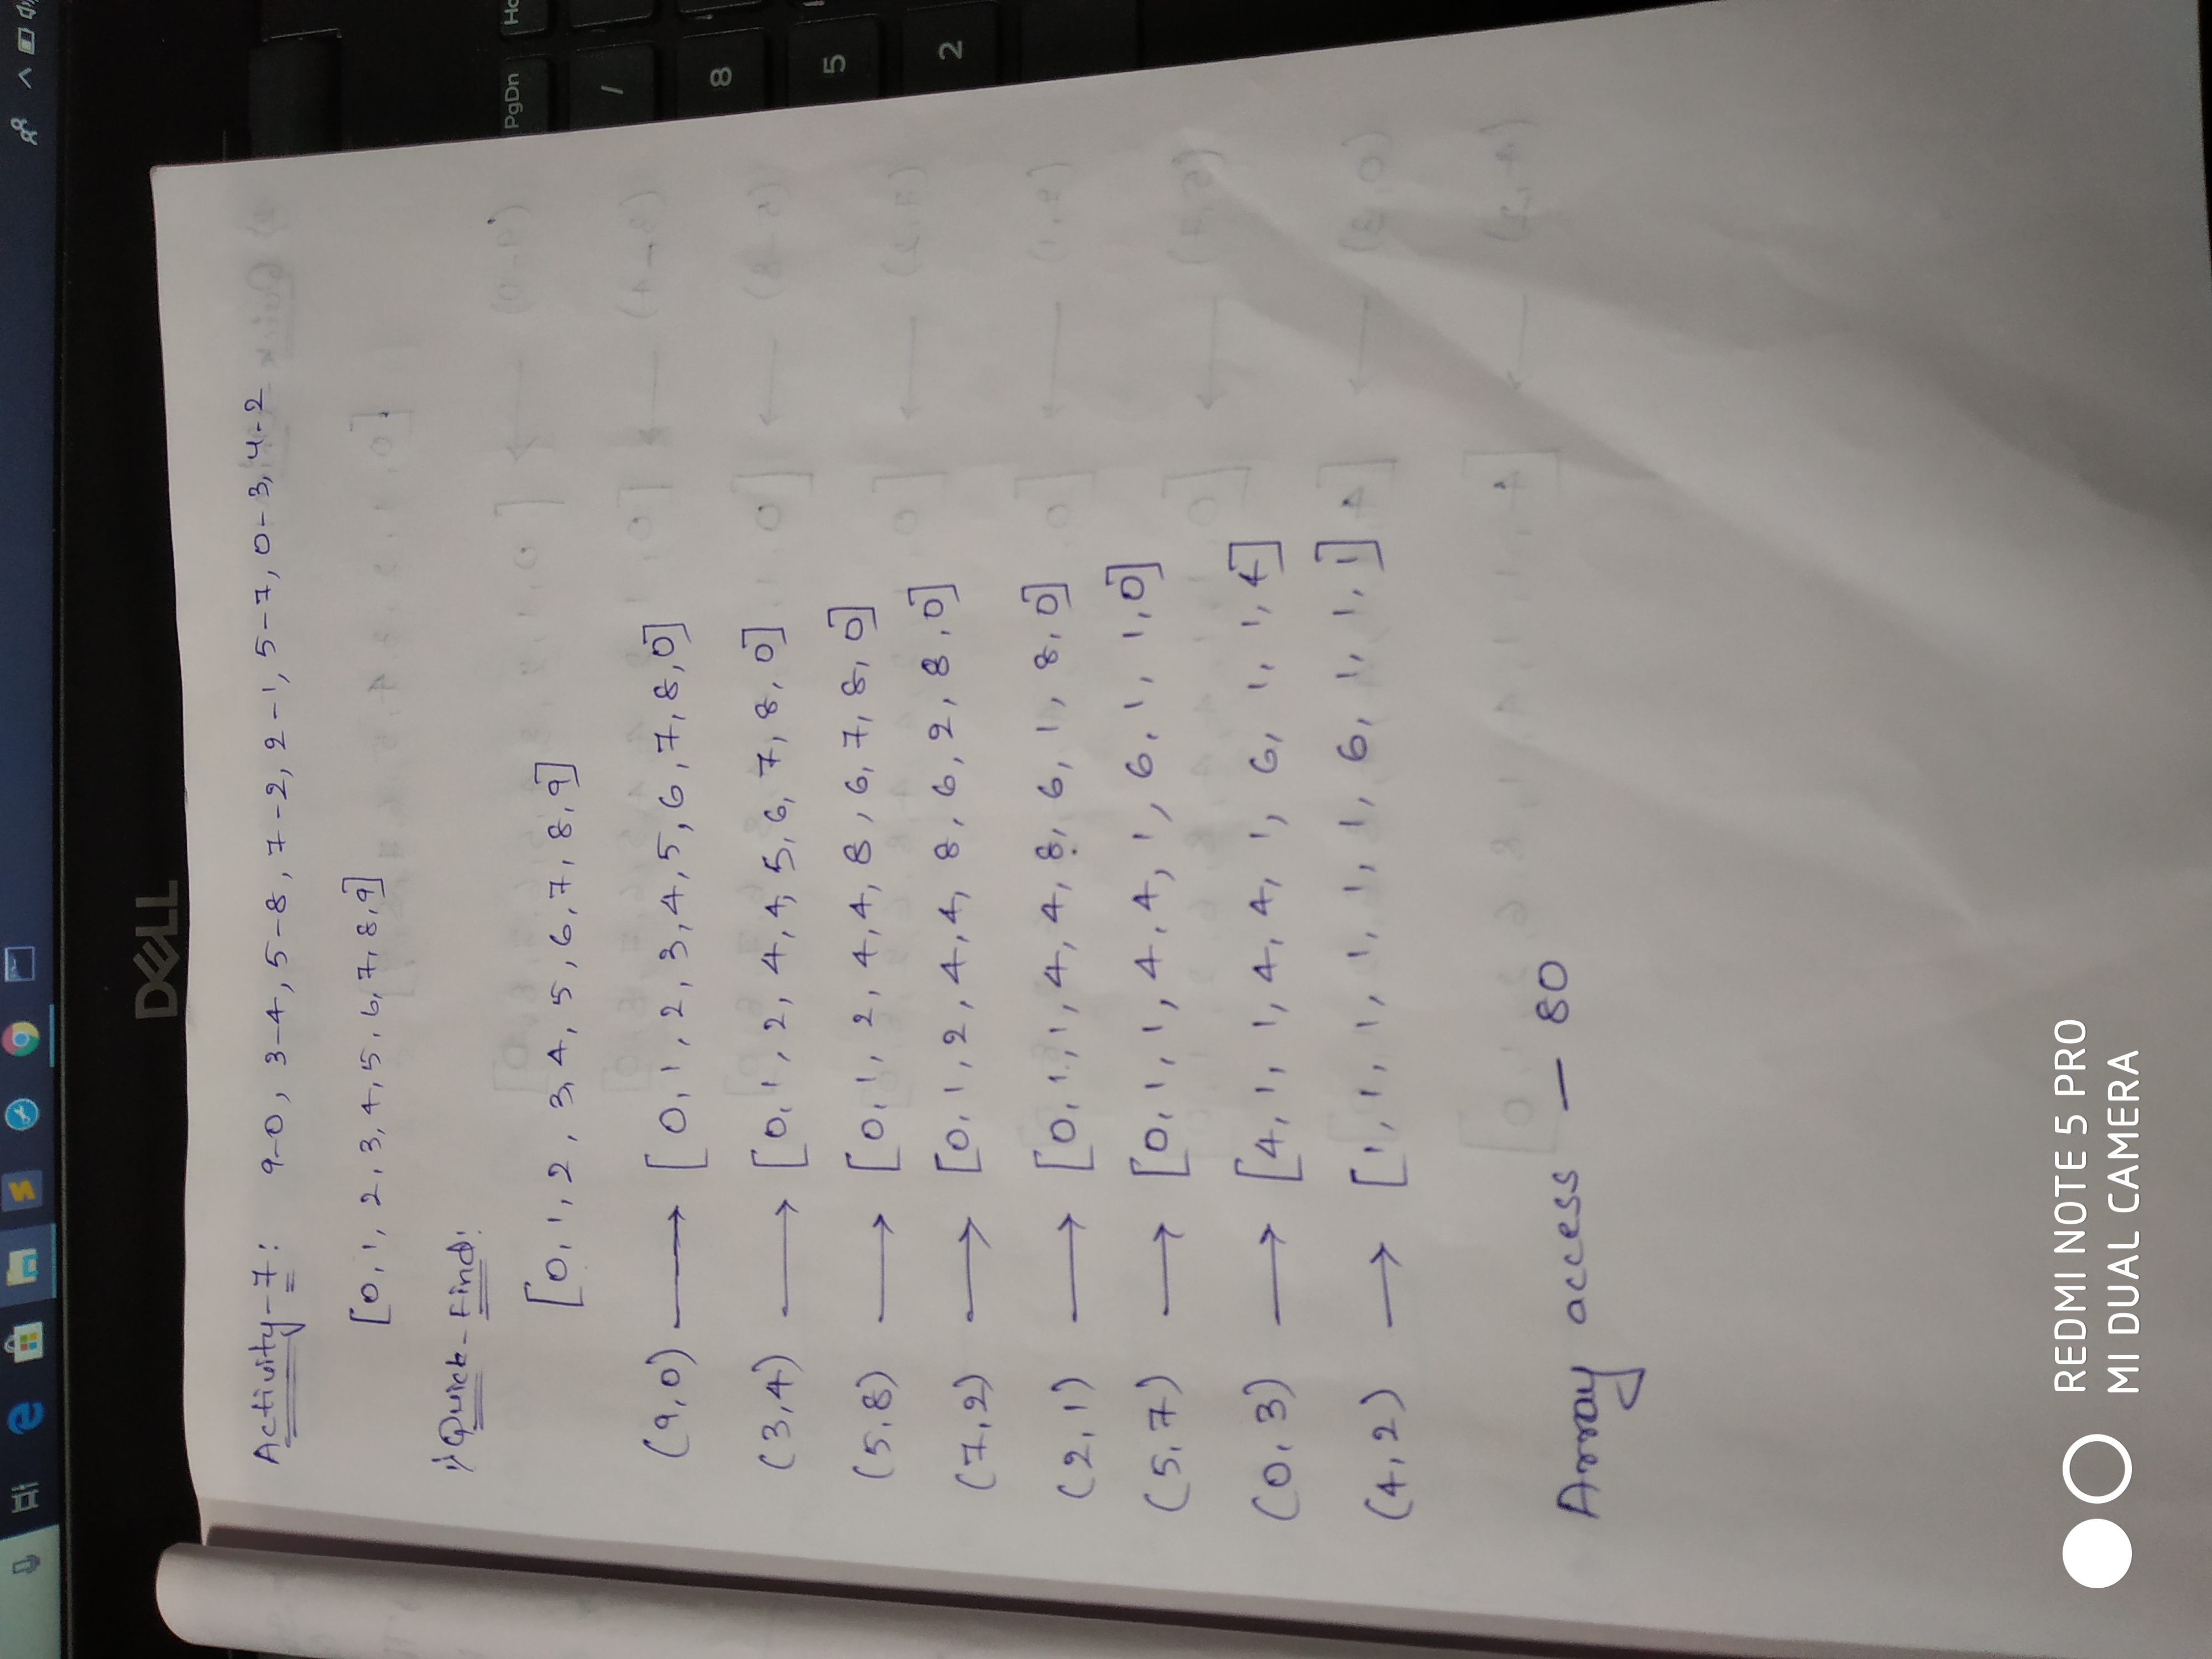 DELL
Activity-7: 9-0, 3-4, 5-8, 7-2, 2-1, 5-7, 0-3, 4-2
[0, 1, 2, 3, 4, 5, 6, 7, 8, 9]
1) Quick-Find:
[0, 1, 2, 3, 4, 5, 6, 7, 8, 9]
(9,0) → [0, 1, 2, 3, 4, 5, 6, 7, 8, 0]
(3,4) → [0, 1, 2, 4, 4, 5, 6, 7, 8, 0]
(5,8) → [0, 1, 2, 4, 4, 8, 6, 7, 8, 0]
(7,2) → [0, 1, 2, 4, 4, 8, 6, 2, 8, 0]
(2,1) → [0, 1, 1, 4, 4, 8, 6, 1, 8, 0]
(5,7) → [0, 1, 1, 4, 4, 1, 6, 1, 1, 0]
(0,3) → [4, 1, 1, 4, 4, 1, 6, 1, 1, 4]
(4,2) → [1, 1, 1, 1, 1, 1, 6, 1, 1, 1]
Array access — 80
PgDn
/
8
5
2
REDMI NOTE 5 PRO
MI DUAL CAMERA